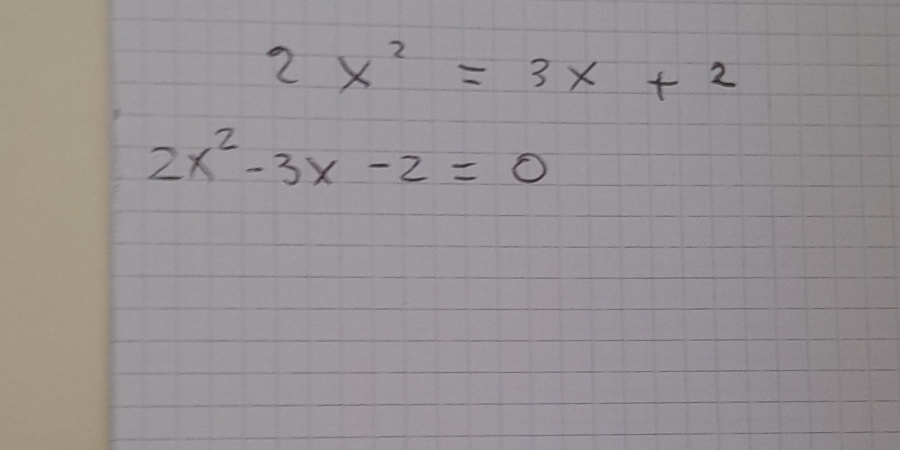 2x² = 3x + 2
2x² - 3x - 2 = 0